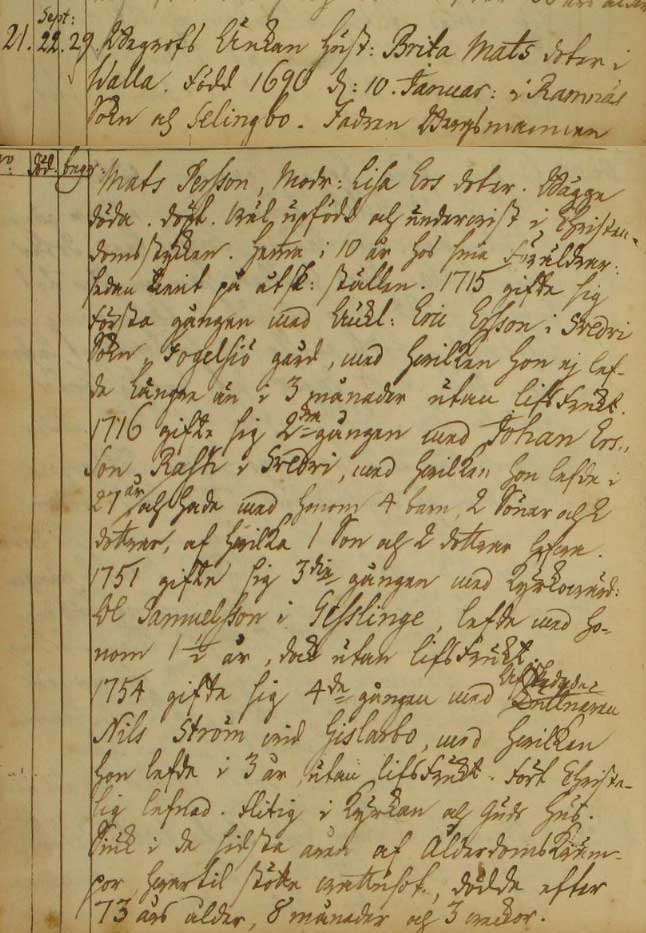 Sept:
21. 22. 29. Enkan Hust: Brita Mats doter i
Walla. Född 1690 d: 10. Januar: i Ramnäs
Sokn och Selingbo. Fadren Bergsmannen
död. begr:
Mats Persson, Modr: Lisa Ers doter. Bägge
döda. döpt. wäl upfödd och underwist i Christen-
domsstycken. hemma i 10 år hos sine Föräldrar:
sedan tient på åtsk: ställen. 1715 gifte sig
första gången med Enkl: Eric Ersson i Svedvi
Sokn, Fogelsiö gård, med hwilken hon ej lef-
de längre än i 3 månader utan lifsfrukt.
1716 gifte sig 2dra gången med Johan Ers-
son, i Svedvi, med hwilken hon lefde i
27 år och hade med honom 4 barn, 2 Söner och 2
dottrar, af hwilka 1 Son och 2 dottrar lefwa.
1751 gifte sig 3die gången med Kyrkowärd:
Ol Samuelsson i Gesslinge, lefde med ho-
nom 1 1/2 år, dock utan lifsfrukt.
Afskedade
1754 gifte sig 4de gången med
Nils Ström wid Gislarbo, med hwilken
hon lefde i 3 år, utan lifsfrukt. Fört Christe-
lig lefnad. flitig i Kyrkan och Guds hus.
Siuk i de sidsta åren af Ålderdomskräm-
por, hwartil stötte wattusot, dödde efter
73 års ålder, 8 månader och 3 weckor.